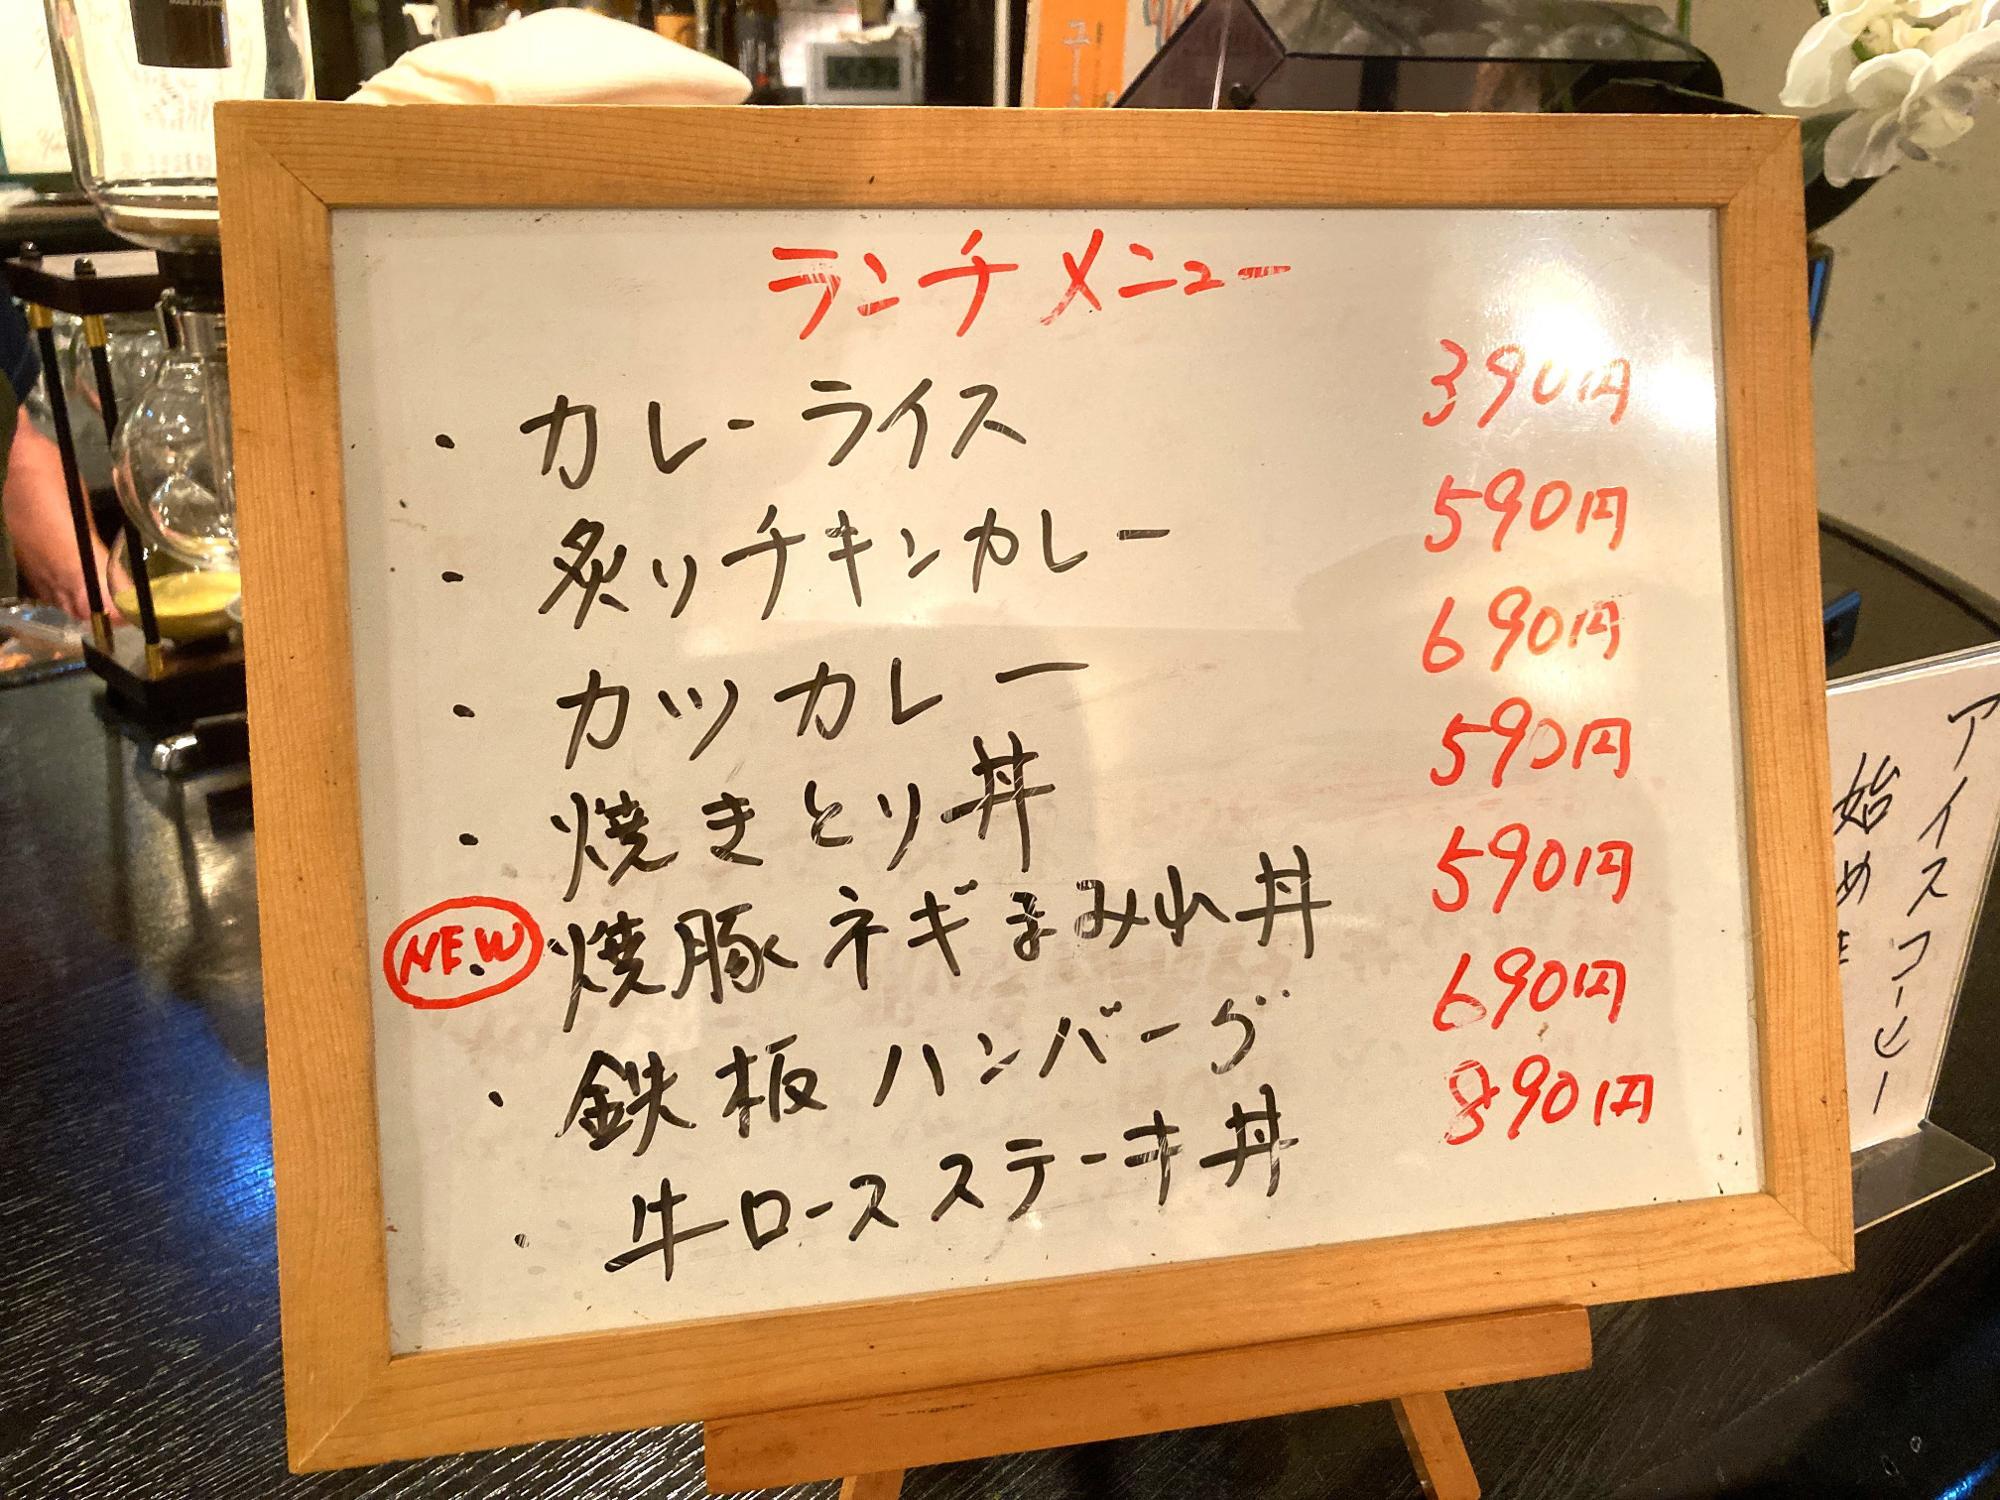 ランチメニュー
・カレーライス 390円
・炙りチキンカレー 590円
・カツカレー 690円
・焼きとり丼 590円
NEW ・焼豚ネギまみれ丼 590円
・鉄板ハンバーグ 690円
・牛ロースステーキ丼 890円
アイスコーヒー
始めま